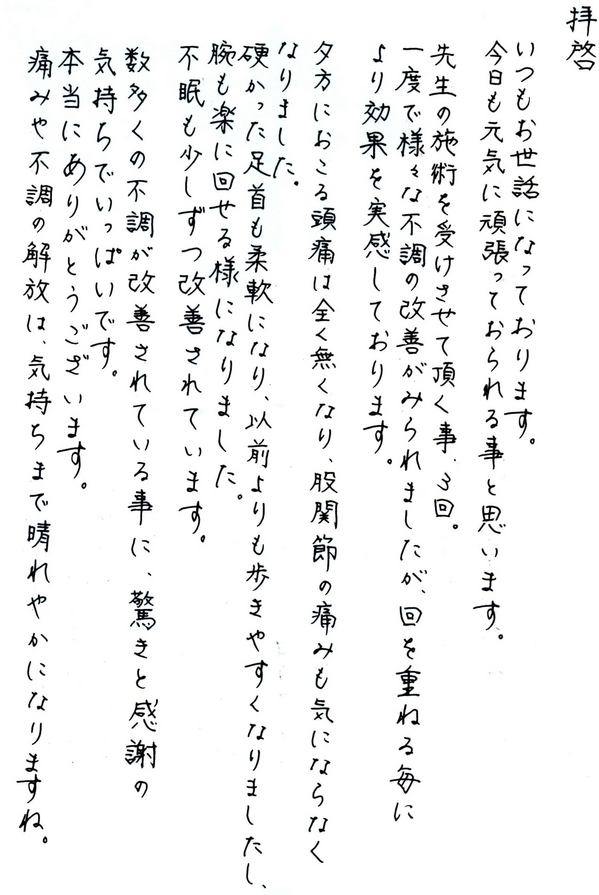 拝啓
いつもお世話になっております。
今日も元気に頑張っておられる事と思います。
先生の施術を受けさせて頂く事、3回。
一度で様々な不調の改善がみられましたが、回を重ねる毎に
より効果を実感しております。
夕方におこる頭痛は全く無くなり、股関節の痛みも気にならなく
なりました。
硬かった足首も柔軟になり、以前よりも歩きやすくなりましたし、
腕も楽に回せる様になりました。
不眠も少しずつ改善されています。
数多くの不調が改善されている事に、驚きと感謝の
気持ちでいっぱいです。
本当にありがとうございます。
痛みや不調の解放は、気持ちまで晴れやかになりますね。